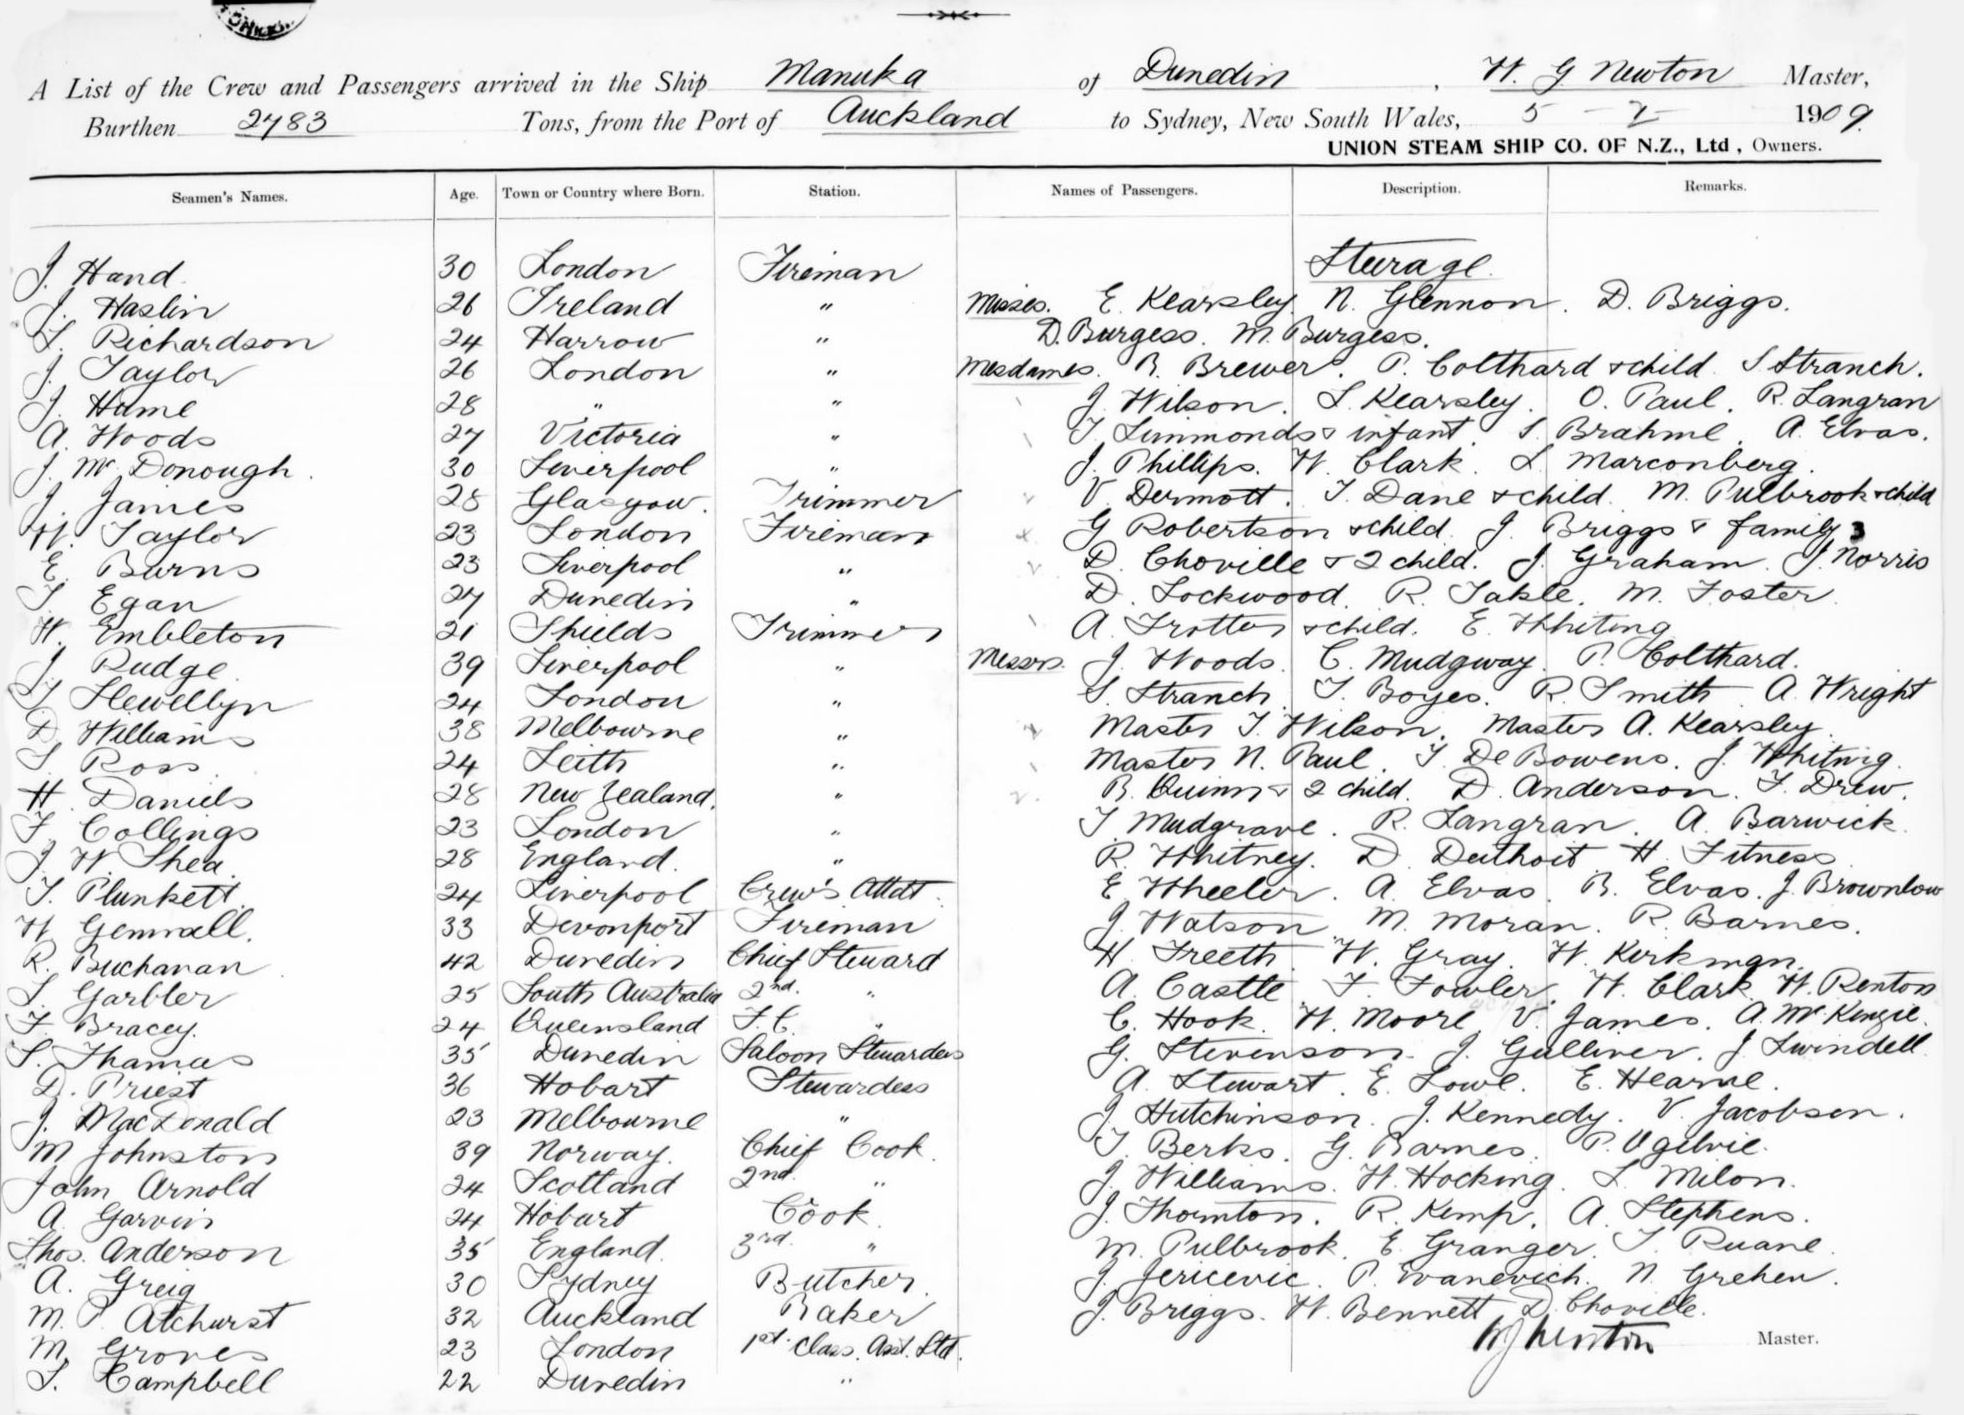 A List of the Crew and Passengers arrived in the Ship Manuka of Dunedin, W. G Newton Master,
Burthen 2783 Tons, from the Port of Auckland to Sydney, New South Wales, 5 - 7 1909.
UNION STEAM SHIP CO. OF N.Z., Ltd, Owners.
Seamen's Names. Age. Town or Country where Born. Station. Names of Passengers. Description. Remarks.
Steerage.
J. Hand 30 London Fireman
J. Haslin 26 Ireland " Misses. E. Kearsley N. Glennon. D. Briggs.
S. Richardson 24 Harrow " D. Burgess. M. Burgess.
J. Taylor 26 London " Mesdames. B. Brewer. P. Colthard & child S Stranch.
J. Hume 28 " " J. Wilson. L. Kearsley. O. Paul. R. Langran
A. Woods 27 Victoria " T Simmonds & infant. S. Brahme. A. Elvas.
J. Mc Donough. 30 Liverpool " J. Phillips. W. Clark. L. Marconberg.
J. James 28 Glasgow. Trimmer V. Dermott. T. Dane & child. M. Pulbrook & child
W. Taylor 23 London Fireman G Robertson & child. J. Briggs & family 3
E. Burns 23 Liverpool " D. Choville & 2 child. J. Graham. J. Norris
T. Egan 27 Dunedin " D. Lockwood. R. Takle. M. Foster
W. Embleton 21 Shields Trimmer A. Trotter & child. E. Whiting
J. Rudge 39 Liverpool " Messrs. J. Woods. C. Mudgway. P. Colthard.
T. Llewellyn 24 London " S. Stranch. T. Boyes. R. Smith A. Wright
D. Williams 38 Melbourne " Master T. Wilson. Master A. Kearsley.
S. Ross 24 Leith " Master N. Paul. T. De Bowens. J. Whitnig.
H. Daniels 28 New Zealand. " B. Quinn & 2 child. D. Anderson. F. Drew.
F. Collings 23 London " T. Mudgrave. R. Langran. A. Barwick.
J. W. Shea. 28 England. " R. Whitney. D. Duthoit H. Fitness
T. Plunkett. 24 Liverpool Crew's Attdt. E Wheeler. A. Elvas. B. Elvas. J. Brownlow
W. Gemmell. 33 Devonport Fireman J. Watson. M. Moran. R. Barnes.
R. Buchanan 42 Dunedin Chief Steward H. Freeth. W. Gray. W. Kirkman.
S. Garbler 25 South Australia 2nd. " A. Castle F. Fowler. W. Clark W. Renton
F. Bracey. 24 Queensland F. C. " C. Hook. W. Moore V. James. A. McKenzie.
S. Thomas 35 Dunedin Saloon Stewardess G. Stevenson. J. Gulliver. J Swindell.
D. Priest 36 Hobart Stewardess A. Stewart. E. Lowe. E. Hearne.
J. MacDonald 23 Melbourne " J. Hutchinson. J. Kennedy. V. Jacobsen.
M Johnston 39 Norway. Chief Cook. T. Berks. G. Barnes. P. Ogilvie.
John Arnold 24 Scotland 2nd. " J. Williams. W. Hocking. L. Milon.
A. Garvin 24 Hobart Cook. J. Thornton. R. Kemp. A. Stephens.
Thos. Anderson 35 England. 3rd. " M. Pulbrook. E. Granger. T. Ruane.
A. Greig 30 Sydney Butcher. J. Jericevic. P. Ivanevich. N. Grehen.
M. P. Atchurst 32 Auckland Baker J. Briggs. W. Bennett. D. Choville.
M. Groves 23 London 1st. Class. Asst. Std. W G Newton Master.
S. Campbell 22 Dunedin "